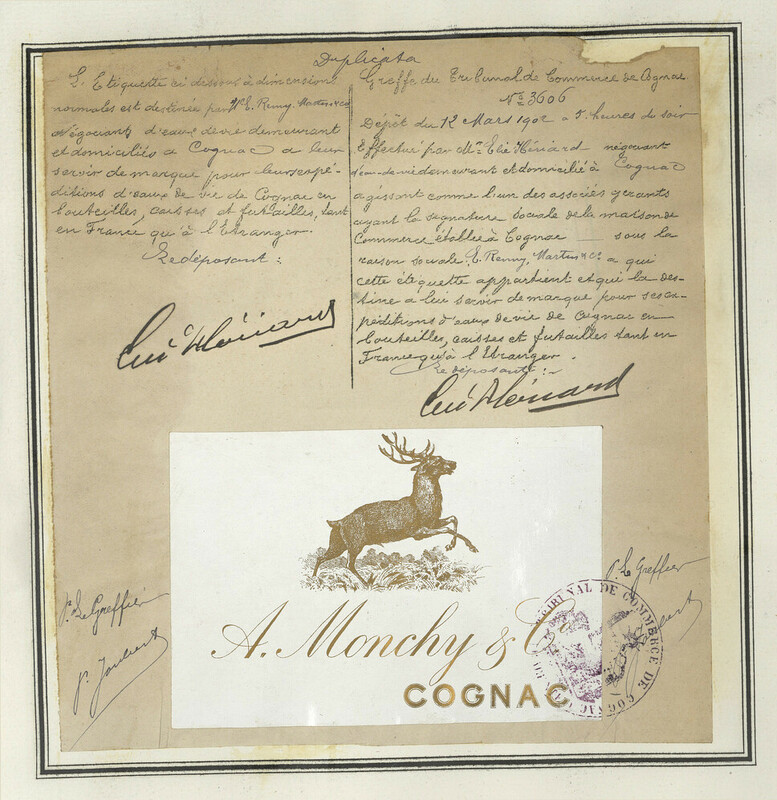 Duplicata
L'Etiquette ci dessous à dimensions
normales est destinée par Mr E. Remy Martin & Co
Négociants d'eaux de vie demeurant
et domiciliés à Cognac à leur
servir de marque pour leurs expé-
ditions d'eaux de vie de Cognac en
bouteilles, caisses et futailles, tant
en France qu'à l'Etranger.
Le déposant :
Greffe du Tribunal de Commerce de Cognac
No 3606
Dépôt du 12 Mars 1902 à 5 heures du soir
Effectué par Mr Elie Hériard négociant
d'eau-de-vie demeurant et domicilié à Cognac
agissant comme l'un des associés gérants
ayant la signature sociale de la maison de
Commerce établie à Cognac — sous la
raison sociale E. Remy, Martin & Co à qui
cette étiquette appartient et qui la des-
tine à lui servir de marque pour ses ex-
péditions d'eaux de vie de Cognac en
bouteilles, caisses et futailles tant en
France qu'à l'Etranger.
Le déposant :-
A. Monchy & Co
COGNAC
p. Le Greffier
P. Joubert
p. Le Greffier
TRIBUNAL DE COMMERCE DE COGNAC